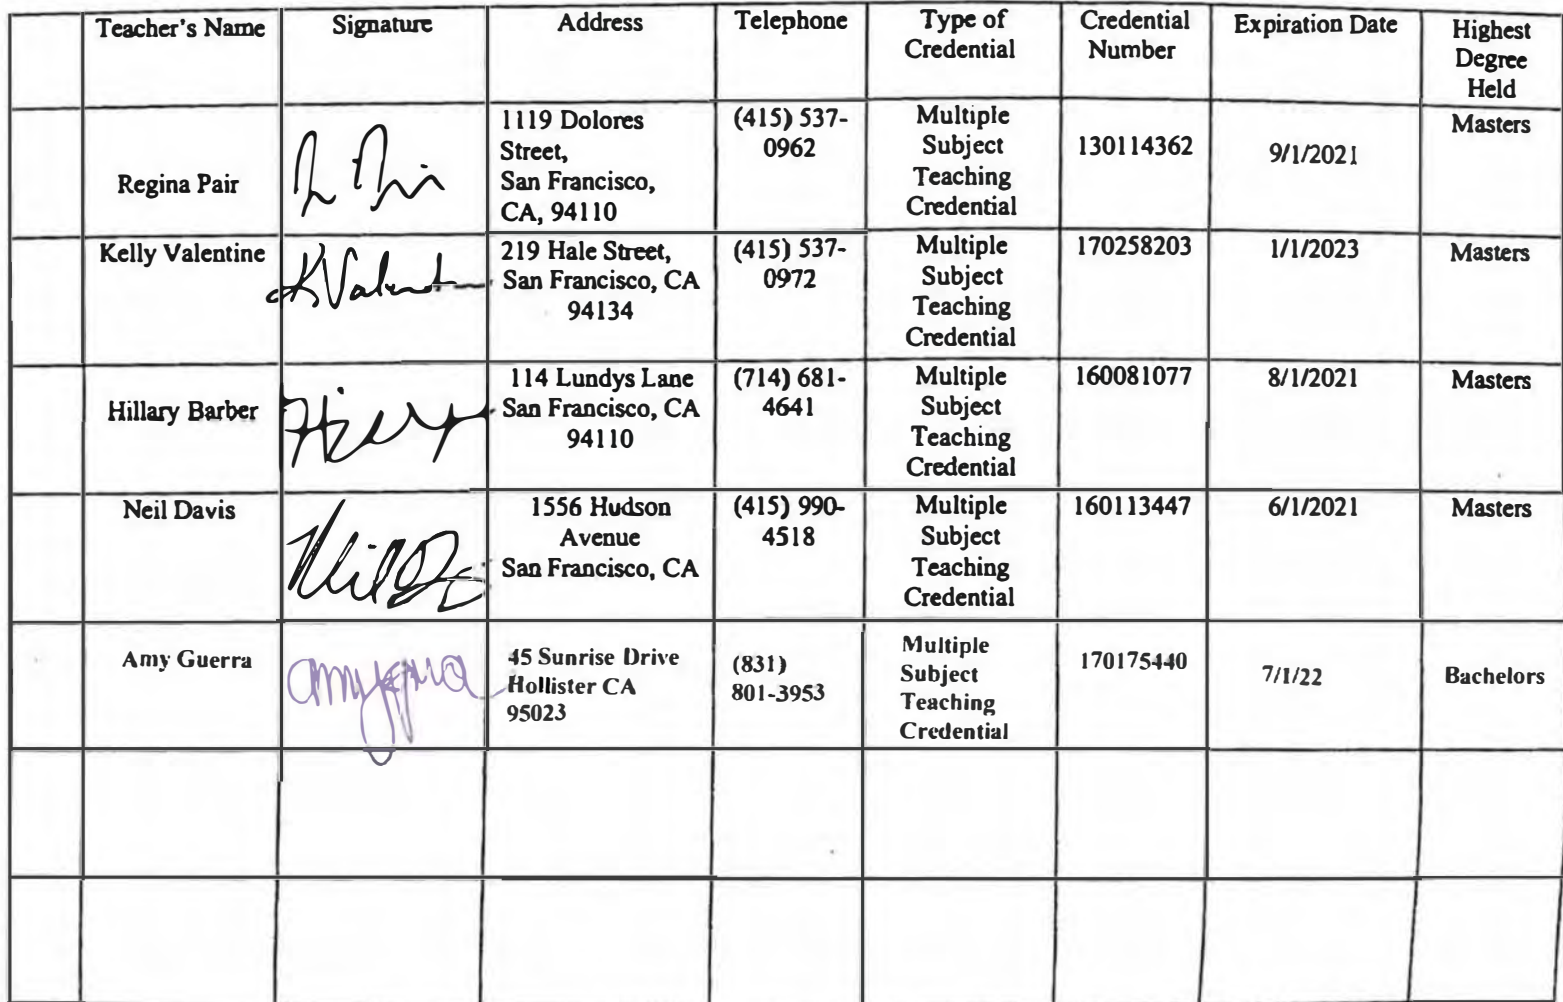 Teacher's Name
Signature
Address
Telephone
Type of
Credential
Credential
Number
Expiration Date
Highest
Degree
Held
Regina Pair
1119 Dolores
Street,
San Francisco,
CA, 94110
(415) 537-
0962
Multiple
Subject
Teaching
Credential
130114362
9/1/2021
Masters
Kelly Valentine
KValent
219 Hale Street,
San Francisco, CA
94134
(415) 537-
0972
Multiple
Subject
Teaching
Credential
170258203
1/1/2023
Masters
Hillary Barber
114 Lundys Lane
San Francisco, CA
94110
(714) 681-
4641
Multiple
Subject
Teaching
Credential
160081077
8/1/2021
Masters
Neil Davis
1556 Hudson
Avenue
San Francisco, CA
(415) 990-
4518
Multiple
Subject
Teaching
Credential
160113447
6/1/2021
Masters
Amy Guerra
45 Sunrise Drive
Hollister CA
95023
(831)
801-3953
Multiple
Subject
Teaching
Credential
170175440
7/1/22
Bachelors